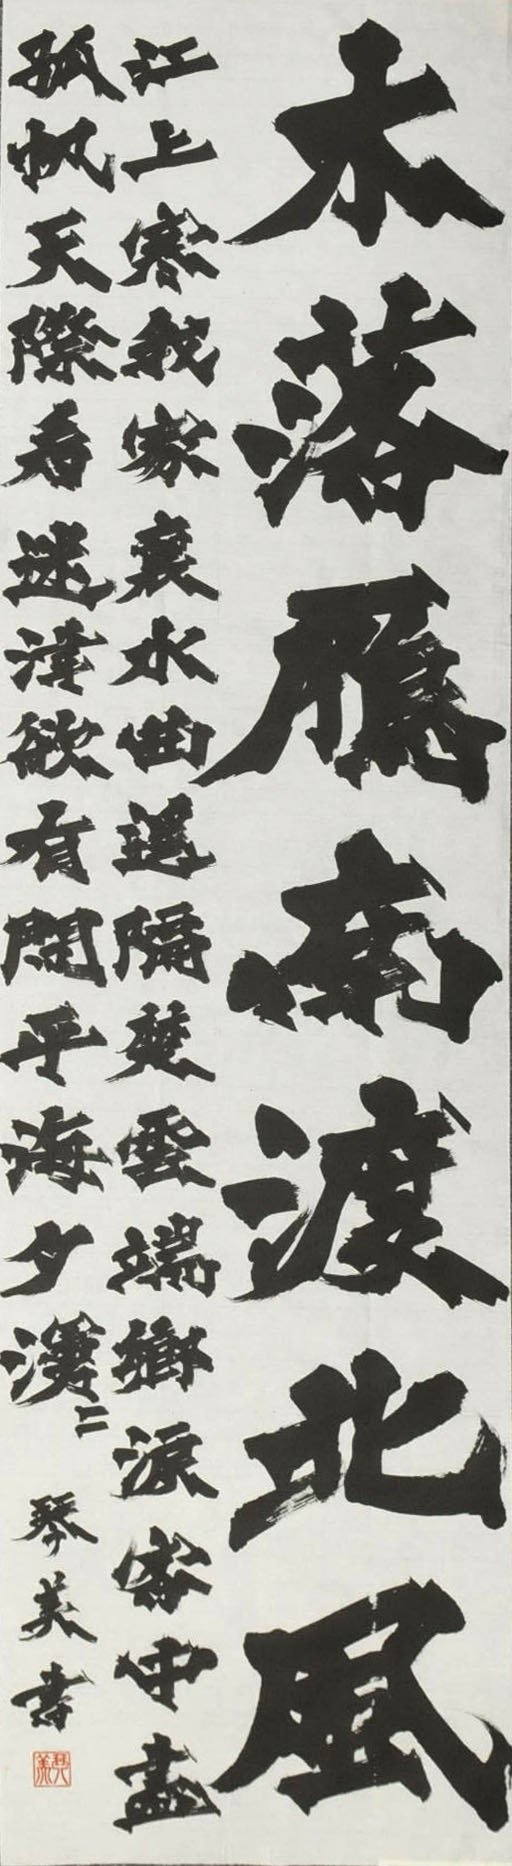 木落鴈南渡北風
江上寒我家襄水曲遥隔楚雲端鄉涙客中盡
孤帆天際看迷津欲有問平海夕漫〻 琴美書
琴美